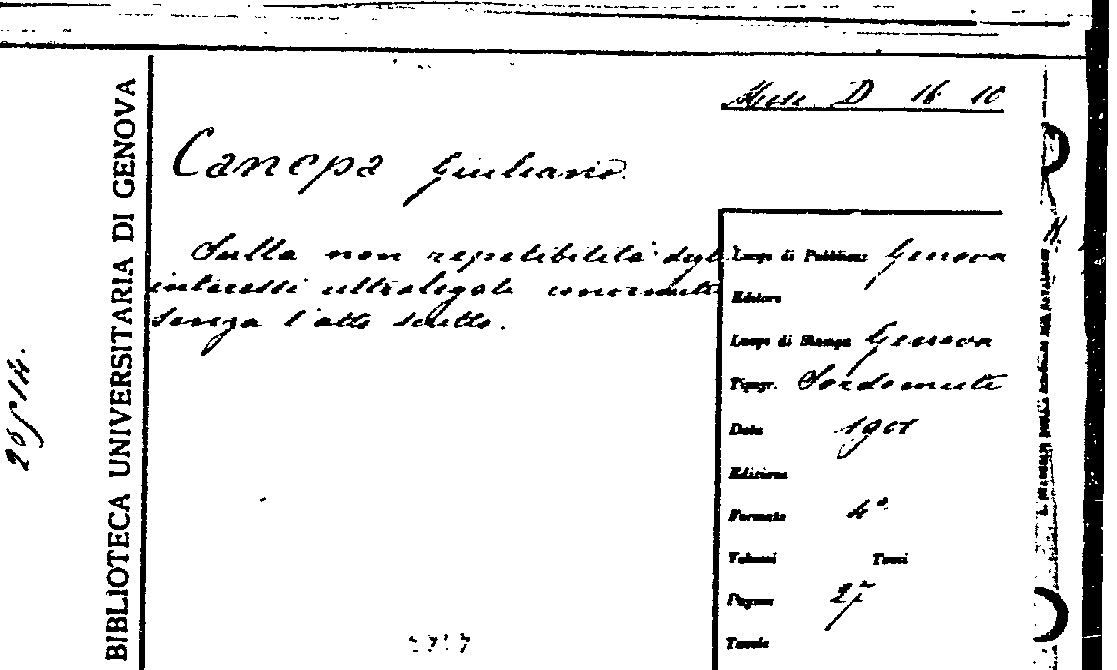 BIBLIOTECA UNIVERSITARIA DI GENOVA
D 16 10
Canepa Giuliano.
Sulla non repetibilità degl
interessi ultralegali
senza l'atto scritto.
Luogo di Pubblicaz. Genova
Editore
Luogo di Stampa Genova
Tipogr. Sordomuti
Data 1901
Edizione
Formato 4°
Volumi Tomi
Pagine 27
Tavole